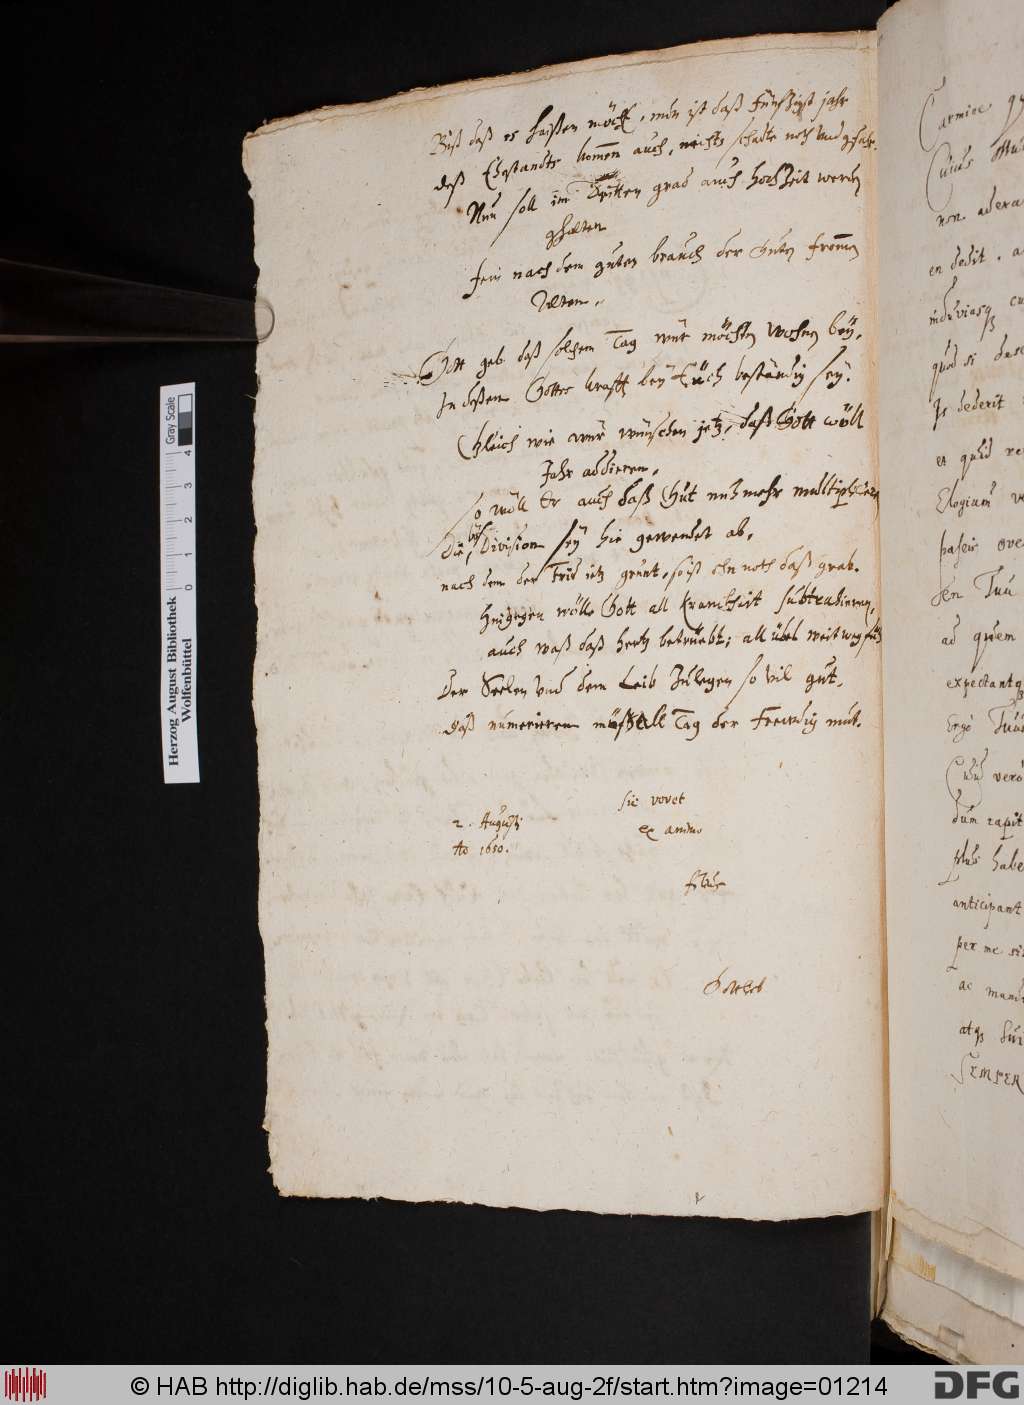 Biß daß es heißen möcht, nun ist daß fünfzigst jahr
deß Ehestandts kommen auch, nichts schadts noch und gfahr.
Nun soll im Dritten grad auch hochzeit werden
ghalten
fein nach dem guten brauch der Guten frommen
Alten.
Gott geb daß solchem Tag wir möchten wohnen bey,
In deßen Gottes krafft bey Euch beständig sey.
Gleich wie wir wünschen jetz, daß Gott wöll
Jahr addieren,
so wöll Er auch daß Gut noch mehr multiplicieren
Die Division sey hie gewendet ab,
nach dem der Frid itz grünt, so ist ohn noth daß grab.
Hergegen wölle Gott all Kranckheit subtrahieren,
auch waß daß hertz betrüebt, all übel weit weg
Der Seelen und dem Leib Zulegen so vil gut,
Daß numerieren müß all Tag der Freudig mut.
2. Augusti
Ao 1650.
sic vovet
ex animo
filius
Gottlieb
Carmine
Cujus
non adera
en dedit. a
induviasq cu
quod si
Is dederit
es quid re
Elogium v
phasein ove
Sen Tuu
ad quem
expectantq
Ergò Tuu
Cuiu verò
dum rapit
plus habe
anticipant
per me si
ac mund
atq tui
SEMPER
Herzog August Bibliothek
Wolfenbüttel
0 1 2 3 4
Gray Scale
© HAB http://diglib.hab.de/mss/10-5-aug-2f/start.htm?image=01214
DFG